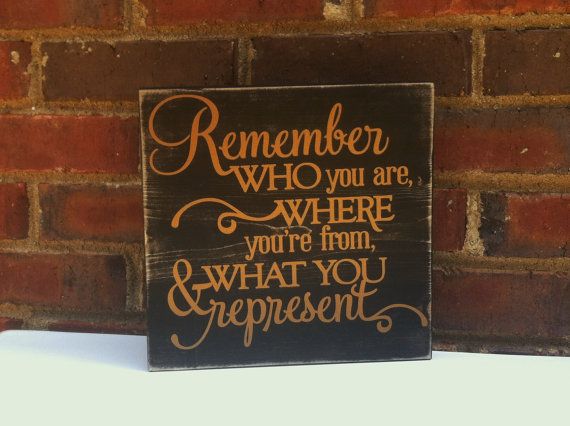 Remember
WHO you are,
WHERE
you're from,
& WHAT YOU
represent